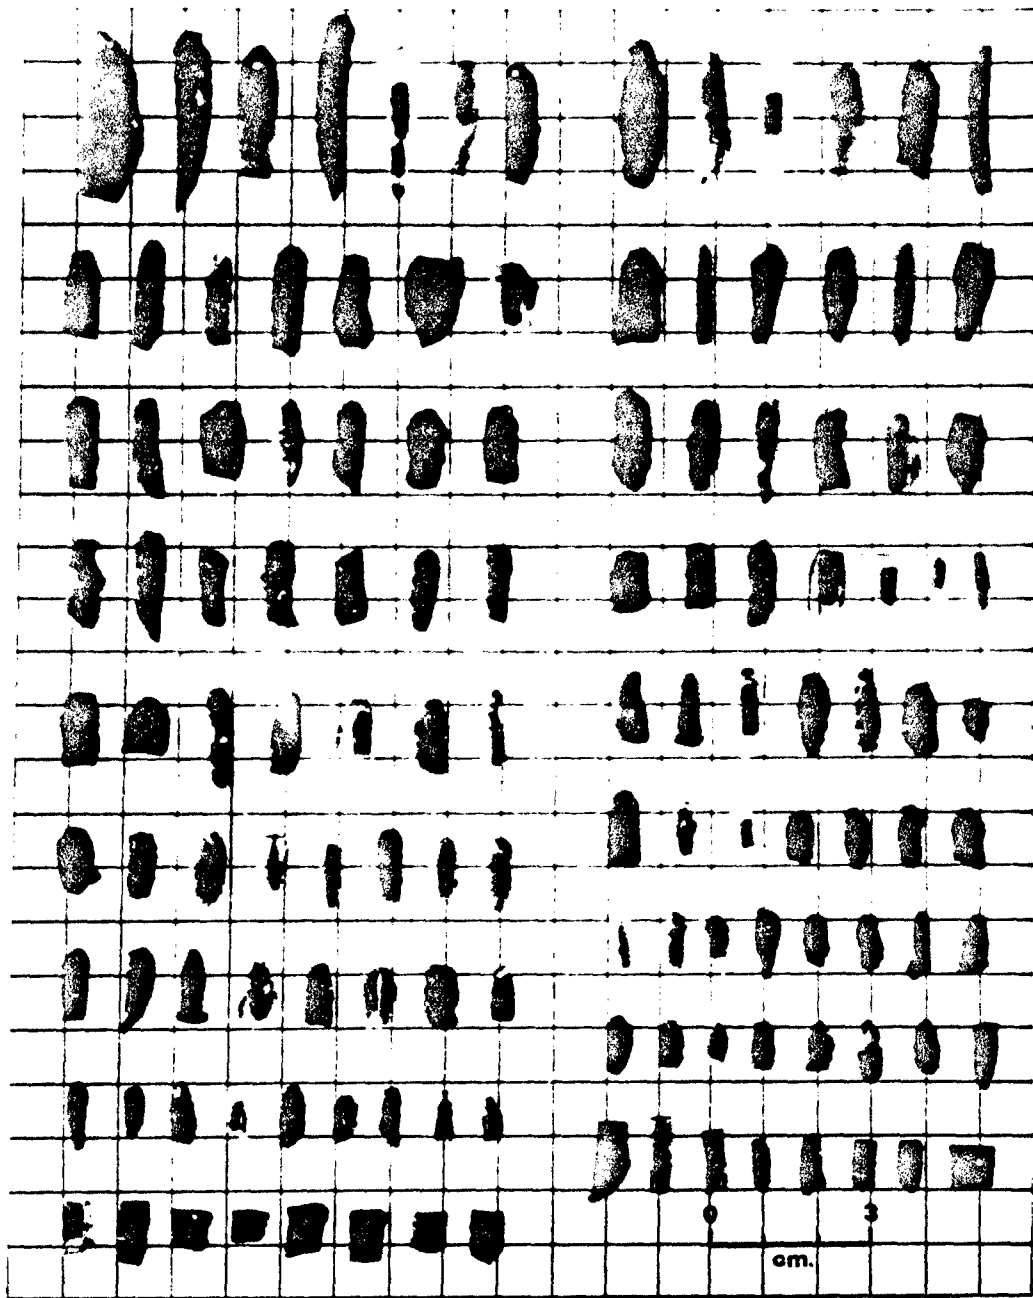 0 3
cm.